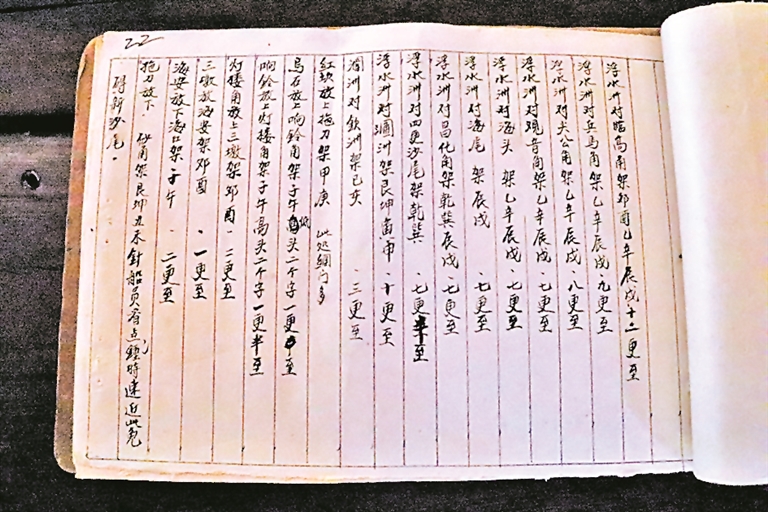 22
浮水洲对临高角架卯酉乙辛辰戍十二更至
浮水洲对兵马角架乙辛辰戍九更至
浮水洲对大公角架乙辛辰戍八更至
浮水洲对观音角架乙辛辰戍七更至
浮水洲对海头架乙辛辰戍七更至
浮水洲对海尾架辰戍七更至
浮水洲对昌化角架乾巽辰戍七更至
浮水洲对四更沙尾架乾巽七更半至
浮水洲对涠洲架艮坤十更至
涠洲对钦洲架巳亥三更至
红坎放上拖刀架甲庚此处网门多
乌石放上响铃角架子午头二个字一更半至
响铃放上灯楼角架子午高头二个字一更半至
灯楼角放上三墩架卯酉二更至
三墩放海安架卯酉一更至
海安放下海口架子午二更至
拖刀放下角架艮坤丑未针船员看点钟时速近此免
碍新沙尾。